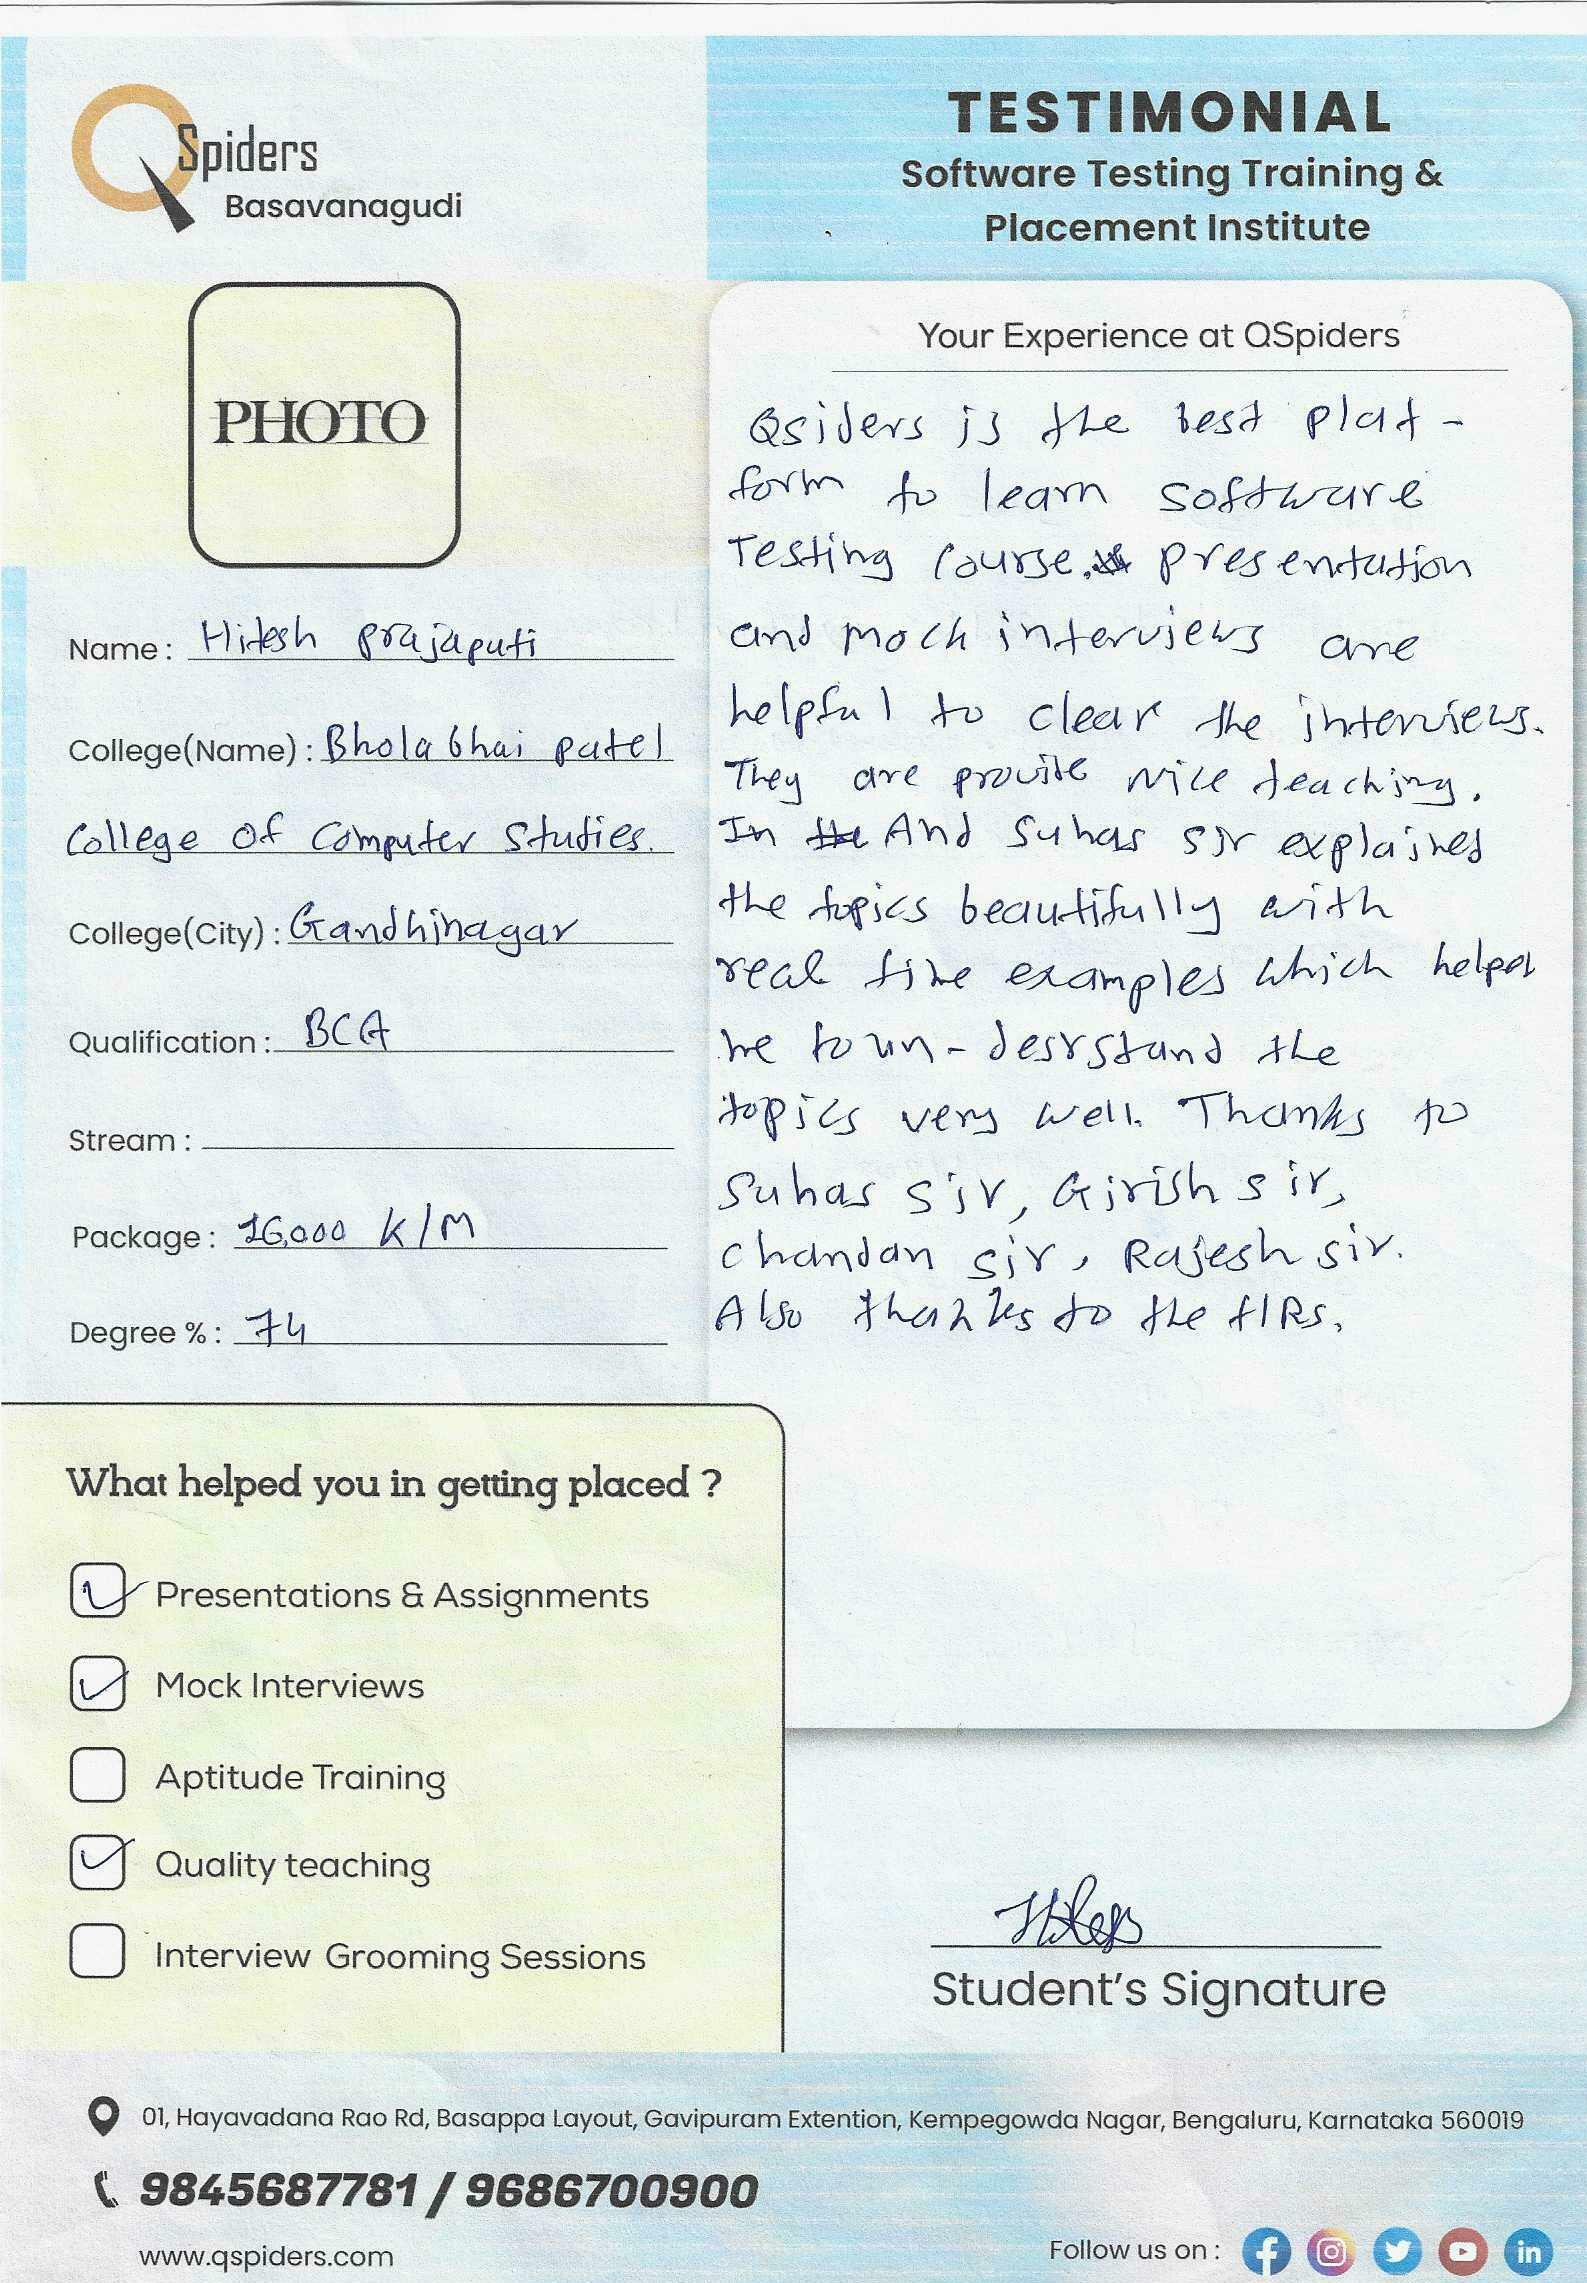 QSpiders
Basavanagudi
TESTIMONIAL
Software Testing Training &
Placement Institute
PHOTO
Name : Hitesh prajapati
College(Name) : Bholabhai patel
College Of Computer Studies.
College(City) : Gandhinagar
Qualification : BCA
Stream :
Package : 16,000 K/M
Degree % : 74
Your Experience at QSpiders
Qsiders is the best plat-
form to learn software
Testing course. presentation
and mock interviews are
helpful to clear the interviews.
They are provide nice teaching.
In the And Suhas sir explained
the topics beautifully with
real time examples which helped
me to un-desrstand the
topics very well. Thanks to
Suhas sir, Girish sir,
chandan sir, Rajesh sir.
Also thanks to the HRs.
What helped you in getting placed ?
Presentations & Assignments
Mock Interviews
Aptitude Training
Quality teaching
Interview Grooming Sessions
Hitesh
Student's Signature
01, Hayavadana Rao Rd, Basappa Layout, Gavipuram Extention, Kempegowda Nagar, Bengaluru, Karnataka 560019
9845687781 / 9686700900
www.qspiders.com
Follow us on :